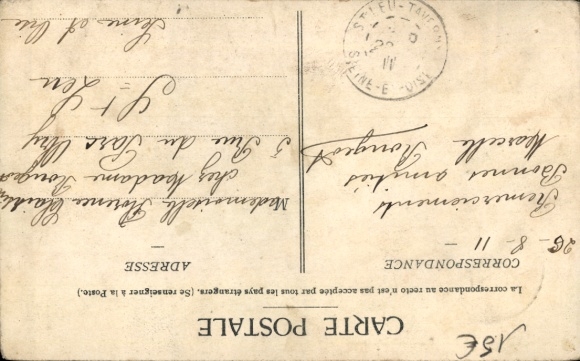 CARTE POSTALE
La correspondance au recto n'est pas acceptée par tous les pays étrangers. (Se renseigner à la Poste.)
CORRESPONDANCE
26 - 8 - 11 -
Remerciements
Bonnes amitiés
Marcelle Rougeot
ADRESSE
Mademoiselle Florence
chez Madame Rougeot
5 Rue du Parc
St Leu
Seine et Oise
ST LEU-TAVERNY
SEINE-ET-OISE
11
15€